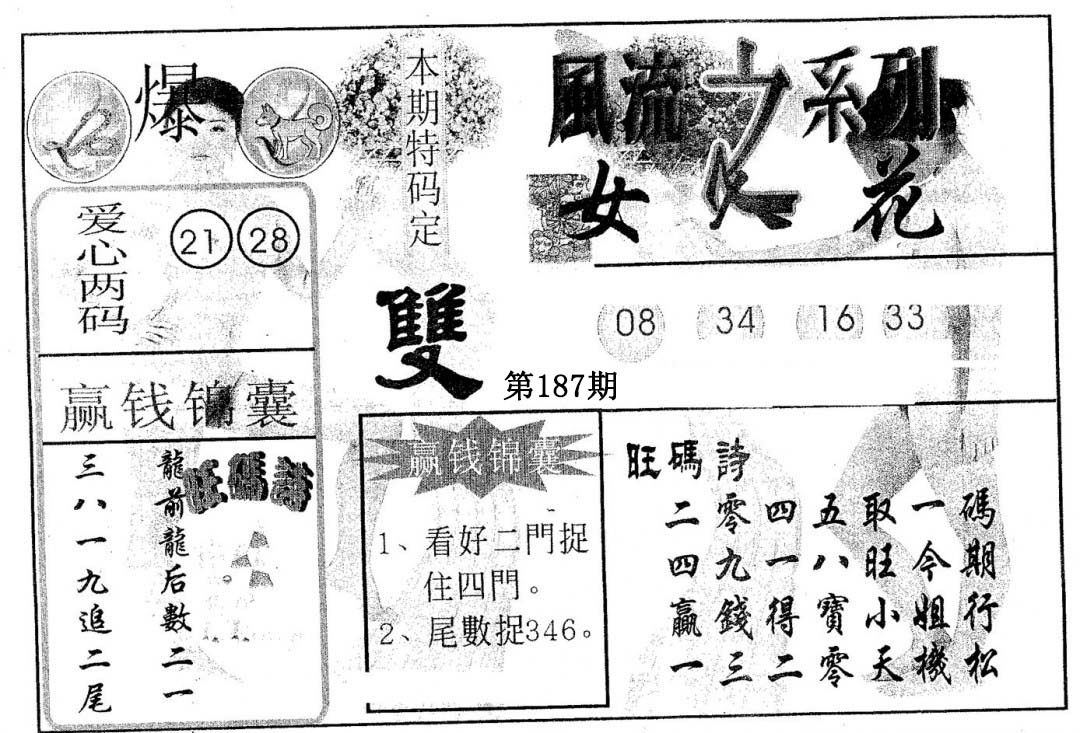 爆
本期特码定
雙
風流之系列
女人花
爱心两码
21 28
08 34 16 33
第187期
赢钱锦囊
旺碼詩
龍前龍后數二一
三八一九追二尾
赢钱锦囊
1、看好二門捉
住四門。
2、尾數捉346。
旺碼詩
二零四五取一碼
四九一八旺今期
贏錢得寶小姐行
一三二零天機松